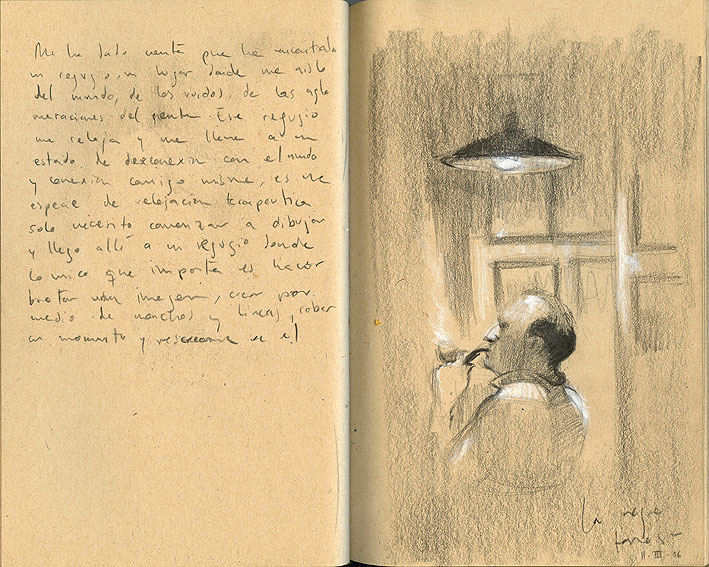 Me he dado cuenta que he encontrado
un refugio, un lugar donde me aislo
del mundo, de los ruidos, de las aglo
meraciones del gente. Ese refugio
me relaja y me lleva a un
estado de desconexión con el mundo
y conexión conmigo mismo, es una
especie de relajación terapéutica
solo necesito comenzar a dibujar
y llego allí a un refugio donde
lo unico que importa es hacer
brotar una imagen, crear por
medio de manchas y líneas, robar
un momento y en el
La negra
11-III-06